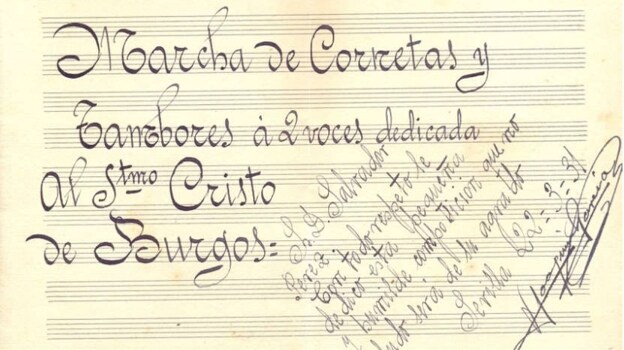 Marcha de Cornetas y
Tambores à 2 voces dedicada
Al Stmo Cristo
de Burgos=
Sr. D. Salvador
Perez.
Con todo respeto le
dedico esta pequeña
y humilde composicion que no
dudo será de su agrado
Sevilla 22=3=31
Joaquin Garcia